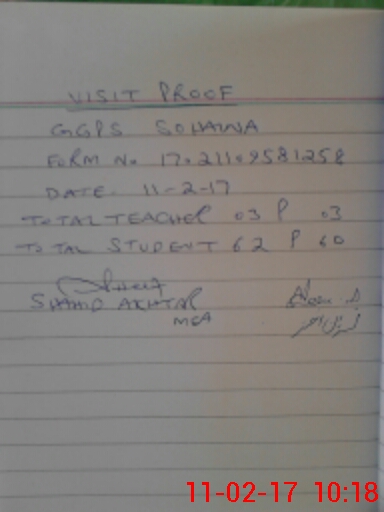 VISIT PROOF
GGPS SOHAWA
FORM No 17021109581258
DATE. 11-2-17
TOTAL TEACHER 03 P 03
TOTAL STUDENT 62 P 60
SHAHID AKHTAR
MEA
11-02-17 10:18